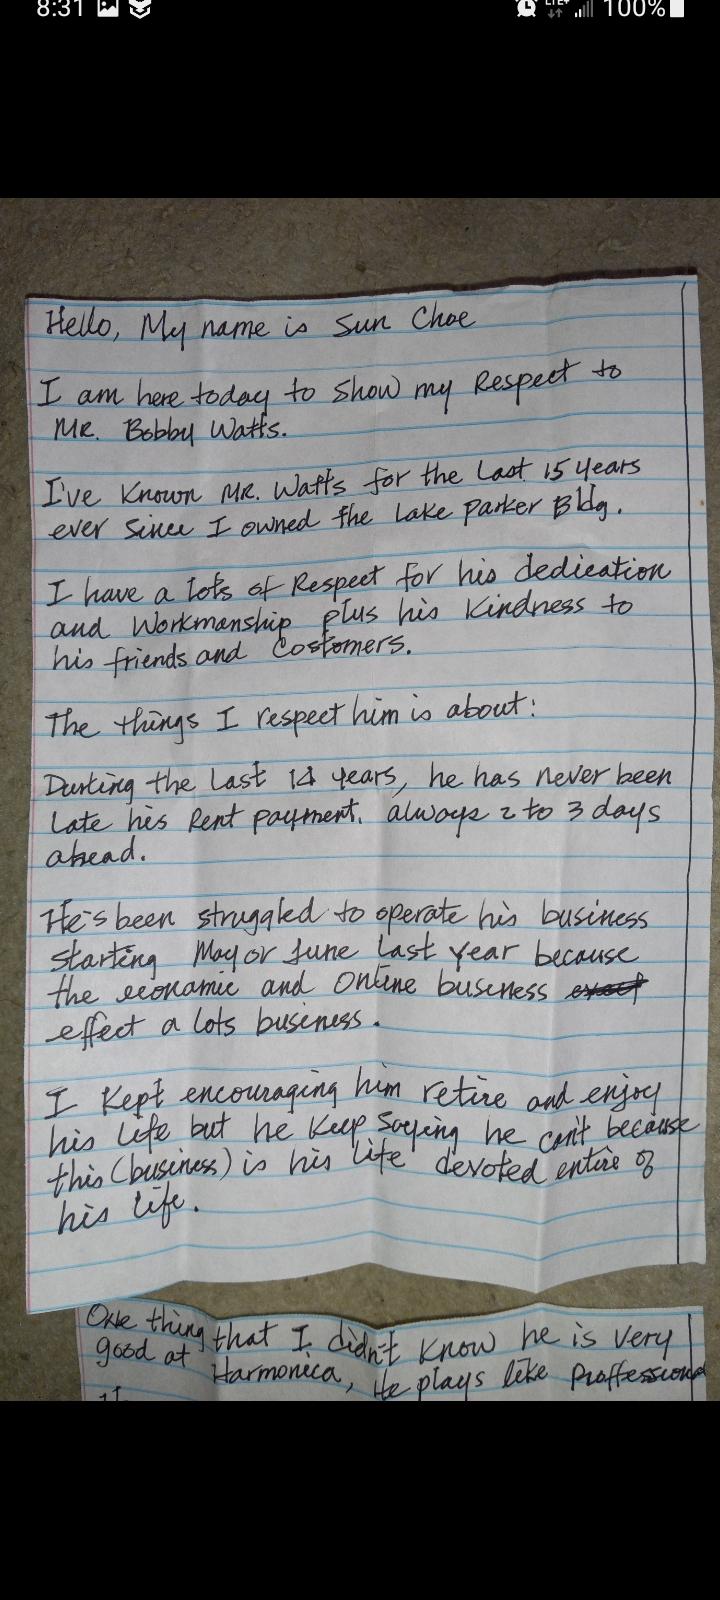 8:31 LTE+ 100%
Hello, My name is Sun Choe
I am here today to show my Respect to
MR. Bobby Watts.
I've Known MR. Watts for the Last 15 years
ever since I owned the Lake Parker Bldg.
I have a lots of Respect for his dedication
and Workmanship plus his Kindness to
his friends and Costomers.
The things I respect him is about:
During the Last 14 years, he has never been
Late his Rent payment. always 2 to 3 days
ahead.
He's been struggled to operate his business
starting May or June Last year because
the economic and Online business
effect a lots business.
I Kept encouraging him retire and enjoy
his Life but he Keep Saying he can't because
this (business) is his Life devoted entire of
his Life.
One thing that I didn't Know he is very
good at Harmonica, He plays like Proffessional